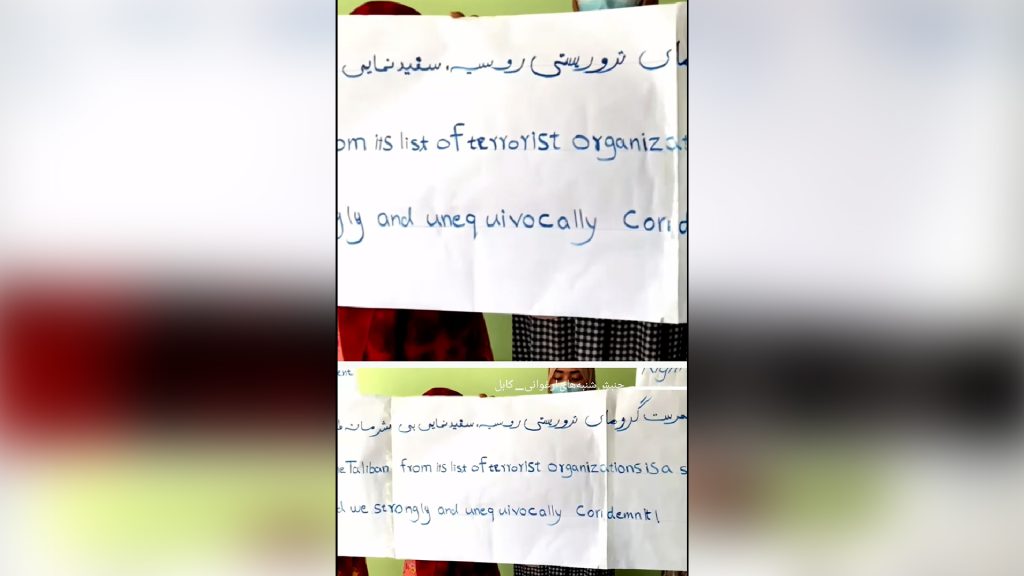 های تروریستی روسیه، سفیدنمایی
om its list of terrorist organizat
gly and unequivocally Cond
ent
Right
جنبش شنبه‌های ارغوانی_کابل
فهرست گروهای تروریستی روسیه، سفیدنمایی بی شرمانه
e Taliban from its list of terrorist organizations is a s
d we strongly and unequivocally Condemn it!